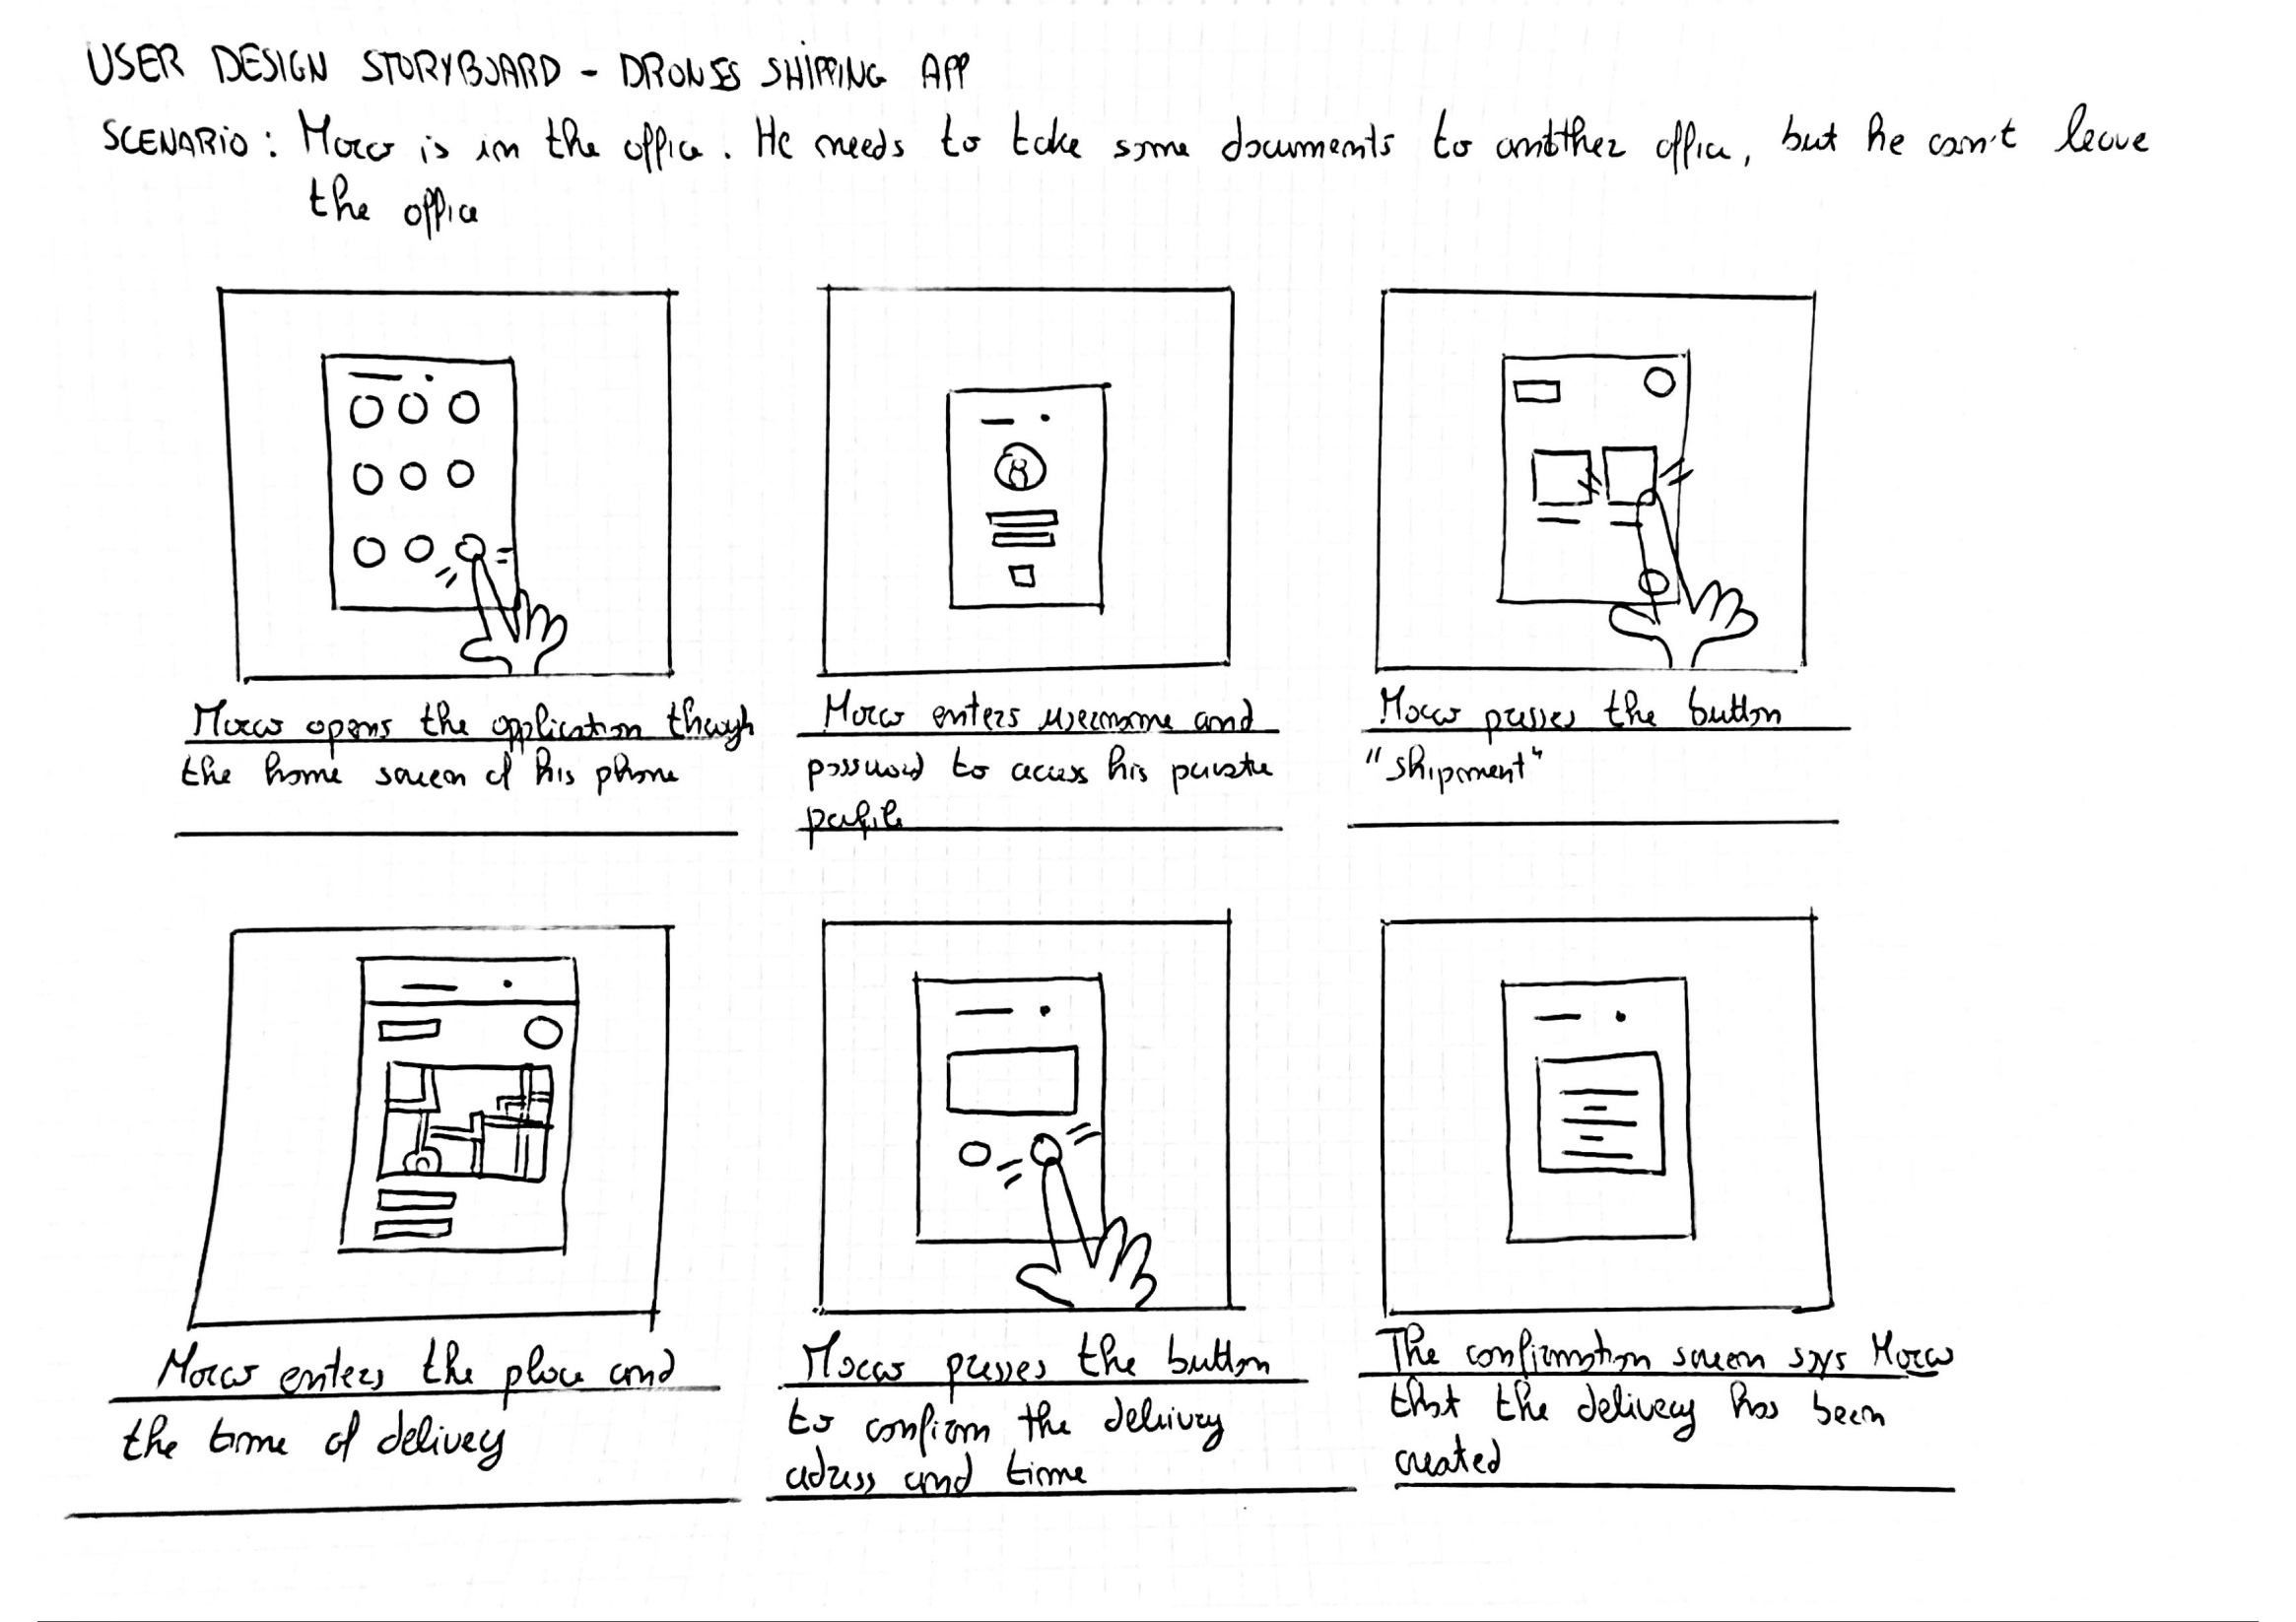 USER DESIGN STORYBOARD - DRONES SHIPPING APP
SCENARIO: Marco is in the office. He needs to take some documents to another office, but he can't leave
the office
Marco opens the application though
the home screen of his phone
Marco enters username and
password to access his private
profile
Marco presses the button
"shipment"
Marco enters the place and
the time of delivery
Marco presses the button
to confirm the delivery
adress and time
The confirmation screen says Marco
that the delivery has been
created